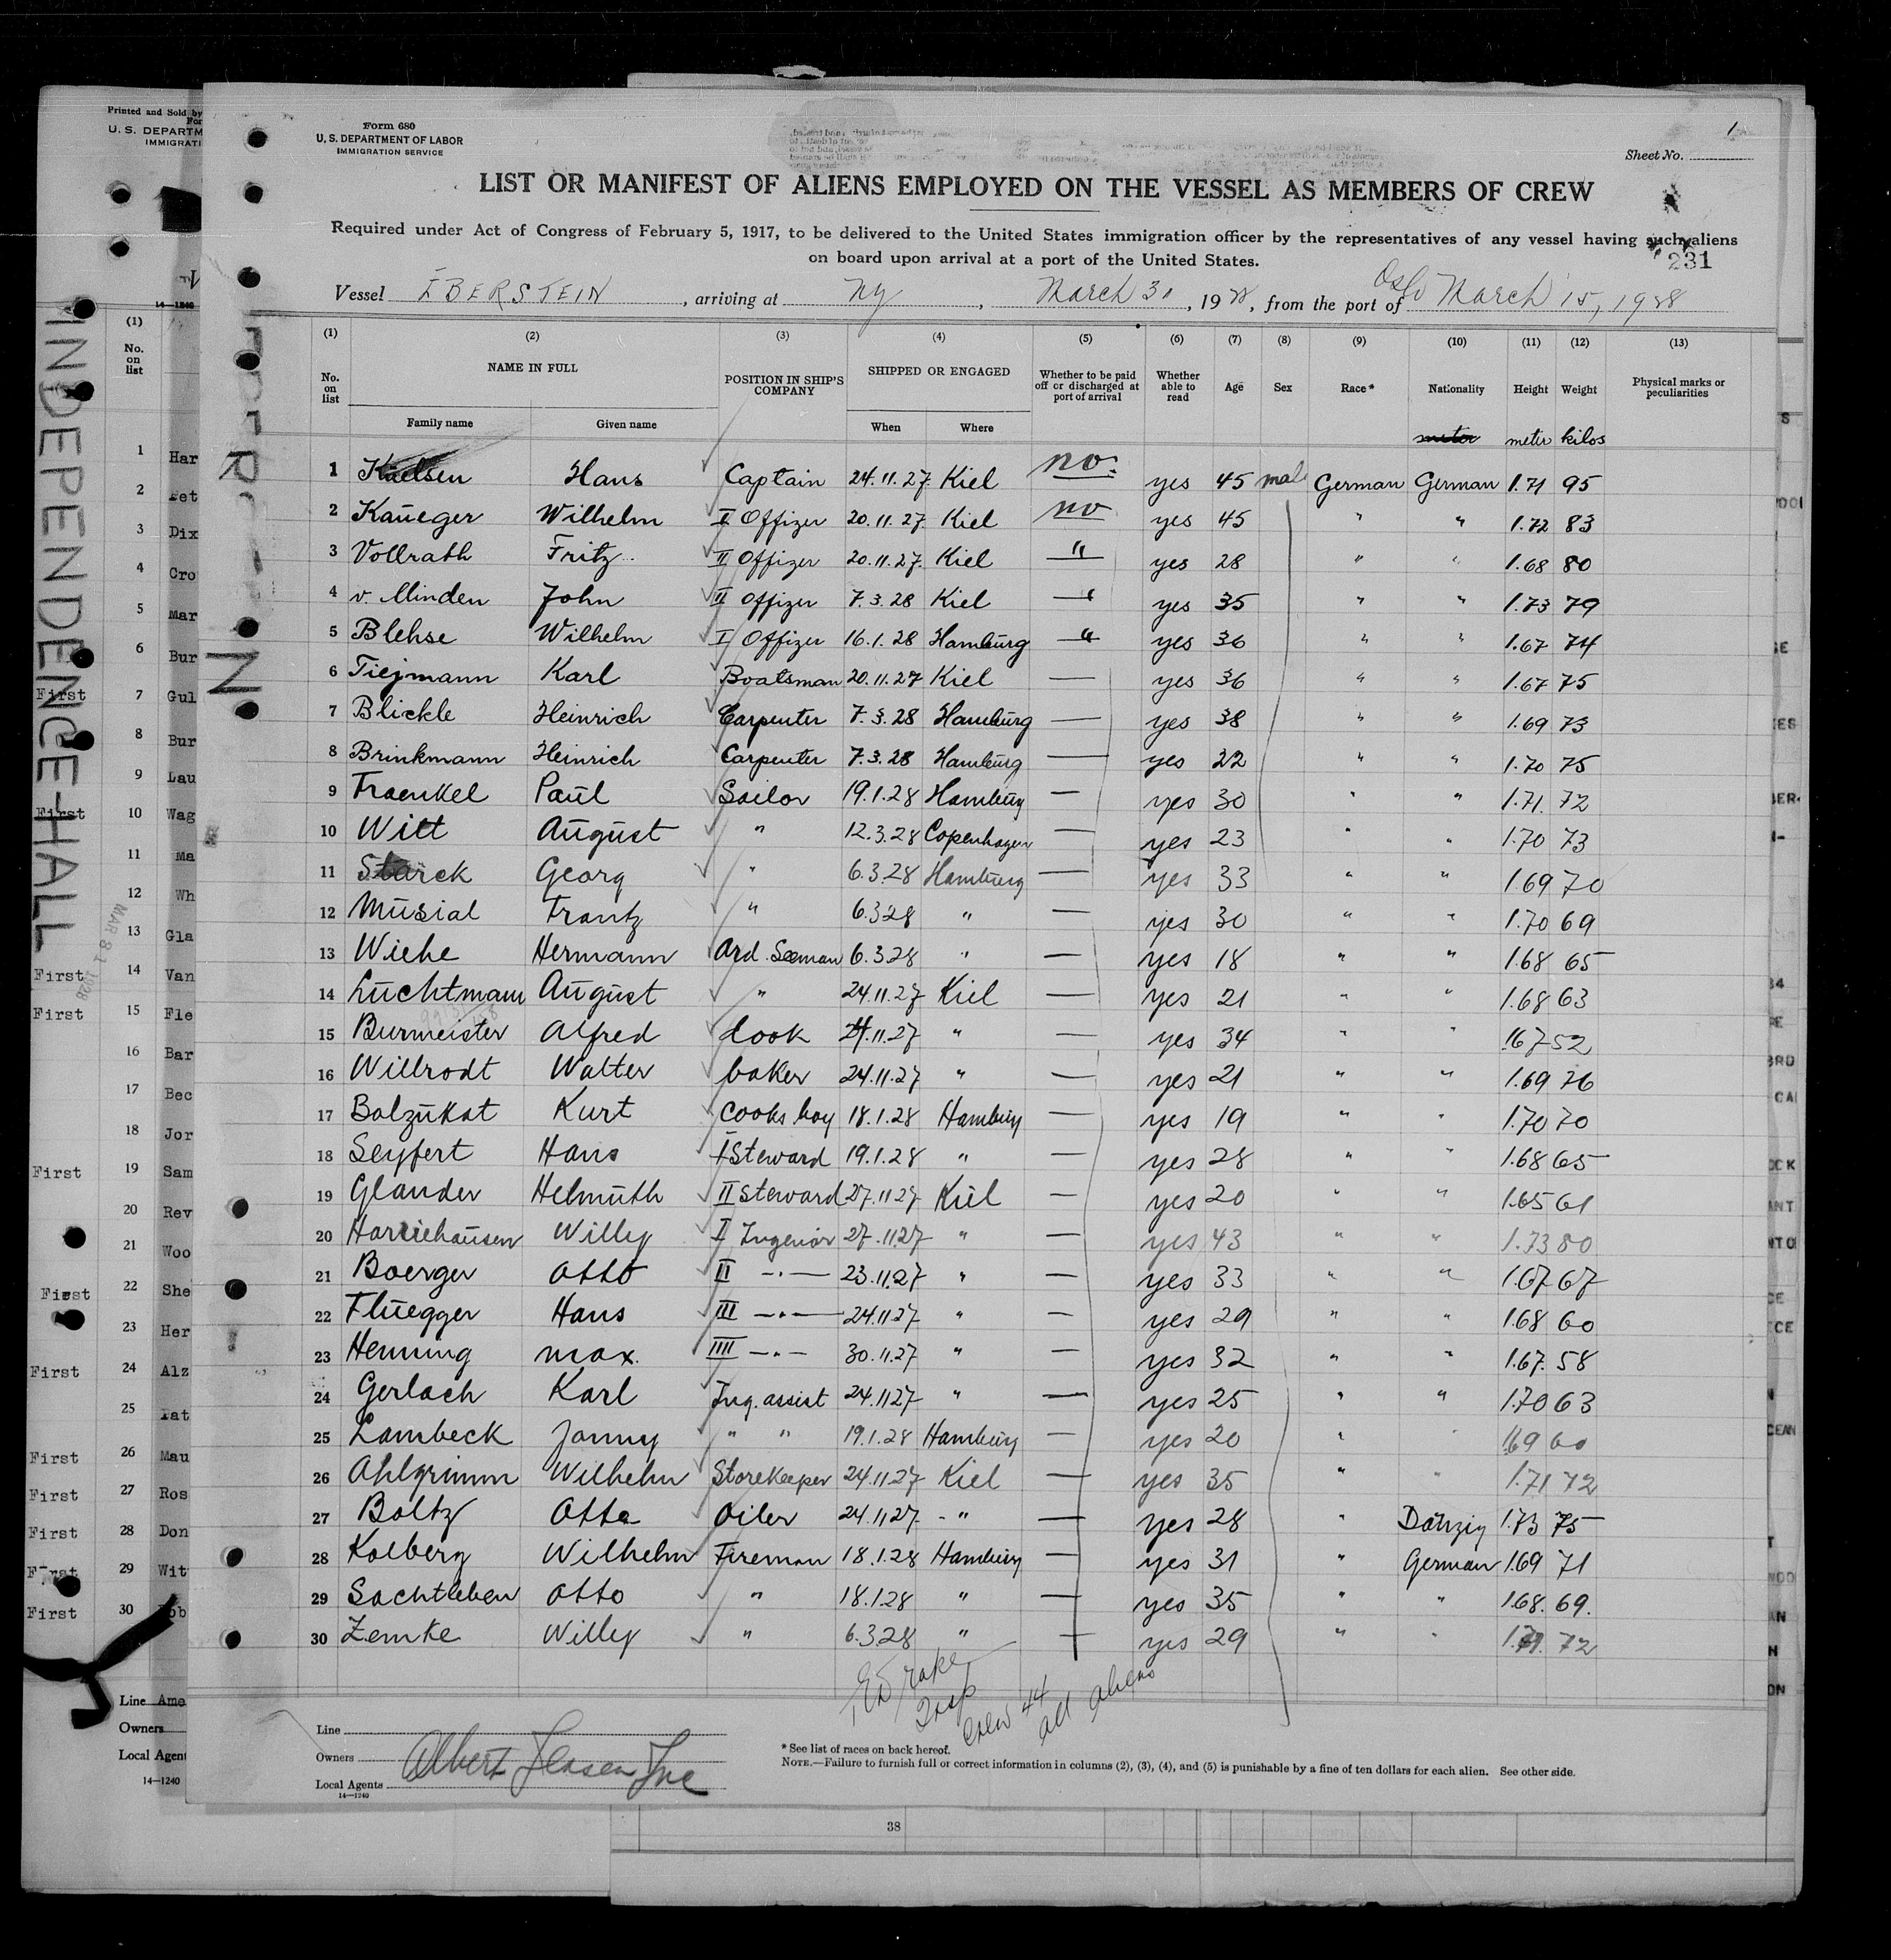 Printed and Sold by
For
U. S. DEPARTM
IMMIGRATI
14—1240
(1)
No.
on
list
INDEPENDENCE-HALL
1 Har
2 Pet
3 Dix
4 Cro
5 Mar
6 Bur
First 7 Gul
8 Bur
9 Lau
First 10 Wag
11 Ma
12 Wh
13 Gla
First 14 Van
First 15 Fle
16 Bar
17 Bec
18 Jor
First 19 Sam
20 Rev
21 Woo
First 22 She
23 Her
First 24 Alz
25 Tat
First 26 Mau
First 27 Ros
First 28 Don
First 29 Wit
First 30 Rob
MAR 31 1928
Line Ame
Owners
Local Agent
14—1240
Form 680
U. S. DEPARTMENT OF LABOR
IMMIGRATION SERVICE
1
Sheet No.
LIST OR MANIFEST OF ALIENS EMPLOYED ON THE VESSEL AS MEMBERS OF CREW
Required under Act of Congress of February 5, 1917, to be delivered to the United States immigration officer by the representatives of any vessel having such aliens
on board upon arrival at a port of the United States.
231
Vessel EBERSTEIN, arriving at NY, March 31, 1928, from the port of Oslo March 15, 1928
(1) (2) (3) (4) (5) (6) (7) (8) (9) (10) (11) (12) (13)
No. on list NAME IN FULL POSITION IN SHIP'S COMPANY SHIPPED OR ENGAGED Whether to be paid off or discharged at port of arrival Whether able to read Age Sex Race* Nationality Height Weight Physical marks or peculiarities
Family name Given name When Where
meter meter kilos
1 Kadsen Hans Captain 24.11.27. Kiel no. yes 45 male German German 1.71 95
2 Kaüeger Wilhelm I Offizer 20.11.27. Kiel no yes 45 " " 1.72 83
3 Vollrath Fritz II Offizer 20.11.27. Kiel " yes 28 " " 1.68 80
4 v. Minden John II Offizer 7.3.28 Kiel " yes 35 " " 1.73 79
5 Blehse Wilhelm I Offizer 16.1.28 Hambürg " yes 36 " " 1.67 74
6 Tiejmann Karl Boatsman 20.11.27 Kiel — yes 36 " " 1.67 75
7 Blickle Heinrich Carpenter 7.3.28 Hambürg — yes 38 " " 1.69 73
8 Brinkmann Heinrich Carpenter 7.3.28 Hambürg — yes 22 " " 1.70 75
9 Fraenkel Paül Sailor 19.1.28 Hambürg — yes 30 " " 1.71. 72
10 Witt Aügüst " 12.3.28 Copenhagen — yes 23 " " 1.70 73
11 Starck Georg " 6.3.28 Hambürg — yes 33 " " 1.69 70
12 Müsial Frantz " 6.3.28 " — yes 30 " " 1.70 69
13 Wiehe Hermann Ord. Seeman 6.3.28 " — yes 18 " " 1.68 65
14 Lüchtmann Aügüst " 24.11.27 Kiel — yes 21 " " 1.68 63
15 Burmeister Alfred Cook 24.11.27 " — yes 34 " " 1.67 52
16 Willrodt Walter baker 24.11.27 " — yes 21 " " 1.69 76
17 Balzükat Kurt Cooks boy 18.1.28 Hambürg — yes 19 " " 1.70 70
18 Seyfert Hans I Steward 19.1.28 " — yes 28 " " 1.68 65
19 Glander Helmüth II Steward 27.11.27 Kiel — yes 20 " " 1.65 61
20 Harriehaüsen Willy I Ingenior 27.11.27 " — yes 43 " " 1.73 80
21 Boerger Otto II —"— 23.11.27 " — yes 33 " " 1.67 67
22 Flüegger Hans III —"— 24.11.27 " — yes 29 " " 1.68 60
23 Henning max. IIII —"— 30.11.27 " — yes 32 " " 1.67. 58
24 Gerlach Karl Ing. assist 24.11.27 " — yes 25 " " 1.70 63
25 Lambeck Jonny " " 19.1.28 Hambürg — yes 20 " " 1.69 60
26 Ahlgrimm Wilhelm Storekeeper 24.11.27 Kiel — yes 35 " " 1.71 72
27 Boltz Otto Oiler 24.11.27. " — yes 28 " Danzig 1.73 75
28 Kolberg Wilhelm Fireman 18.1.28 Hambürg — yes 31 " German 1.69 71
29 Sachtleben Otto " 18.1.28 " — yes 35 " " 1.68. 69.
30 Zemke Willy " 6.3.28 " — yes 29 " " 72
Drake
Insp
Crew 44
all aliens
Line
Owners
Local Agents
Albert Jensen Inc
14—1240
* See list of races on back hereof.
NOTE.—Failure to furnish full or correct information in columns (2), (3), (4), and (5) is punishable by a fine of ten dollars for each alien. See other side.
38